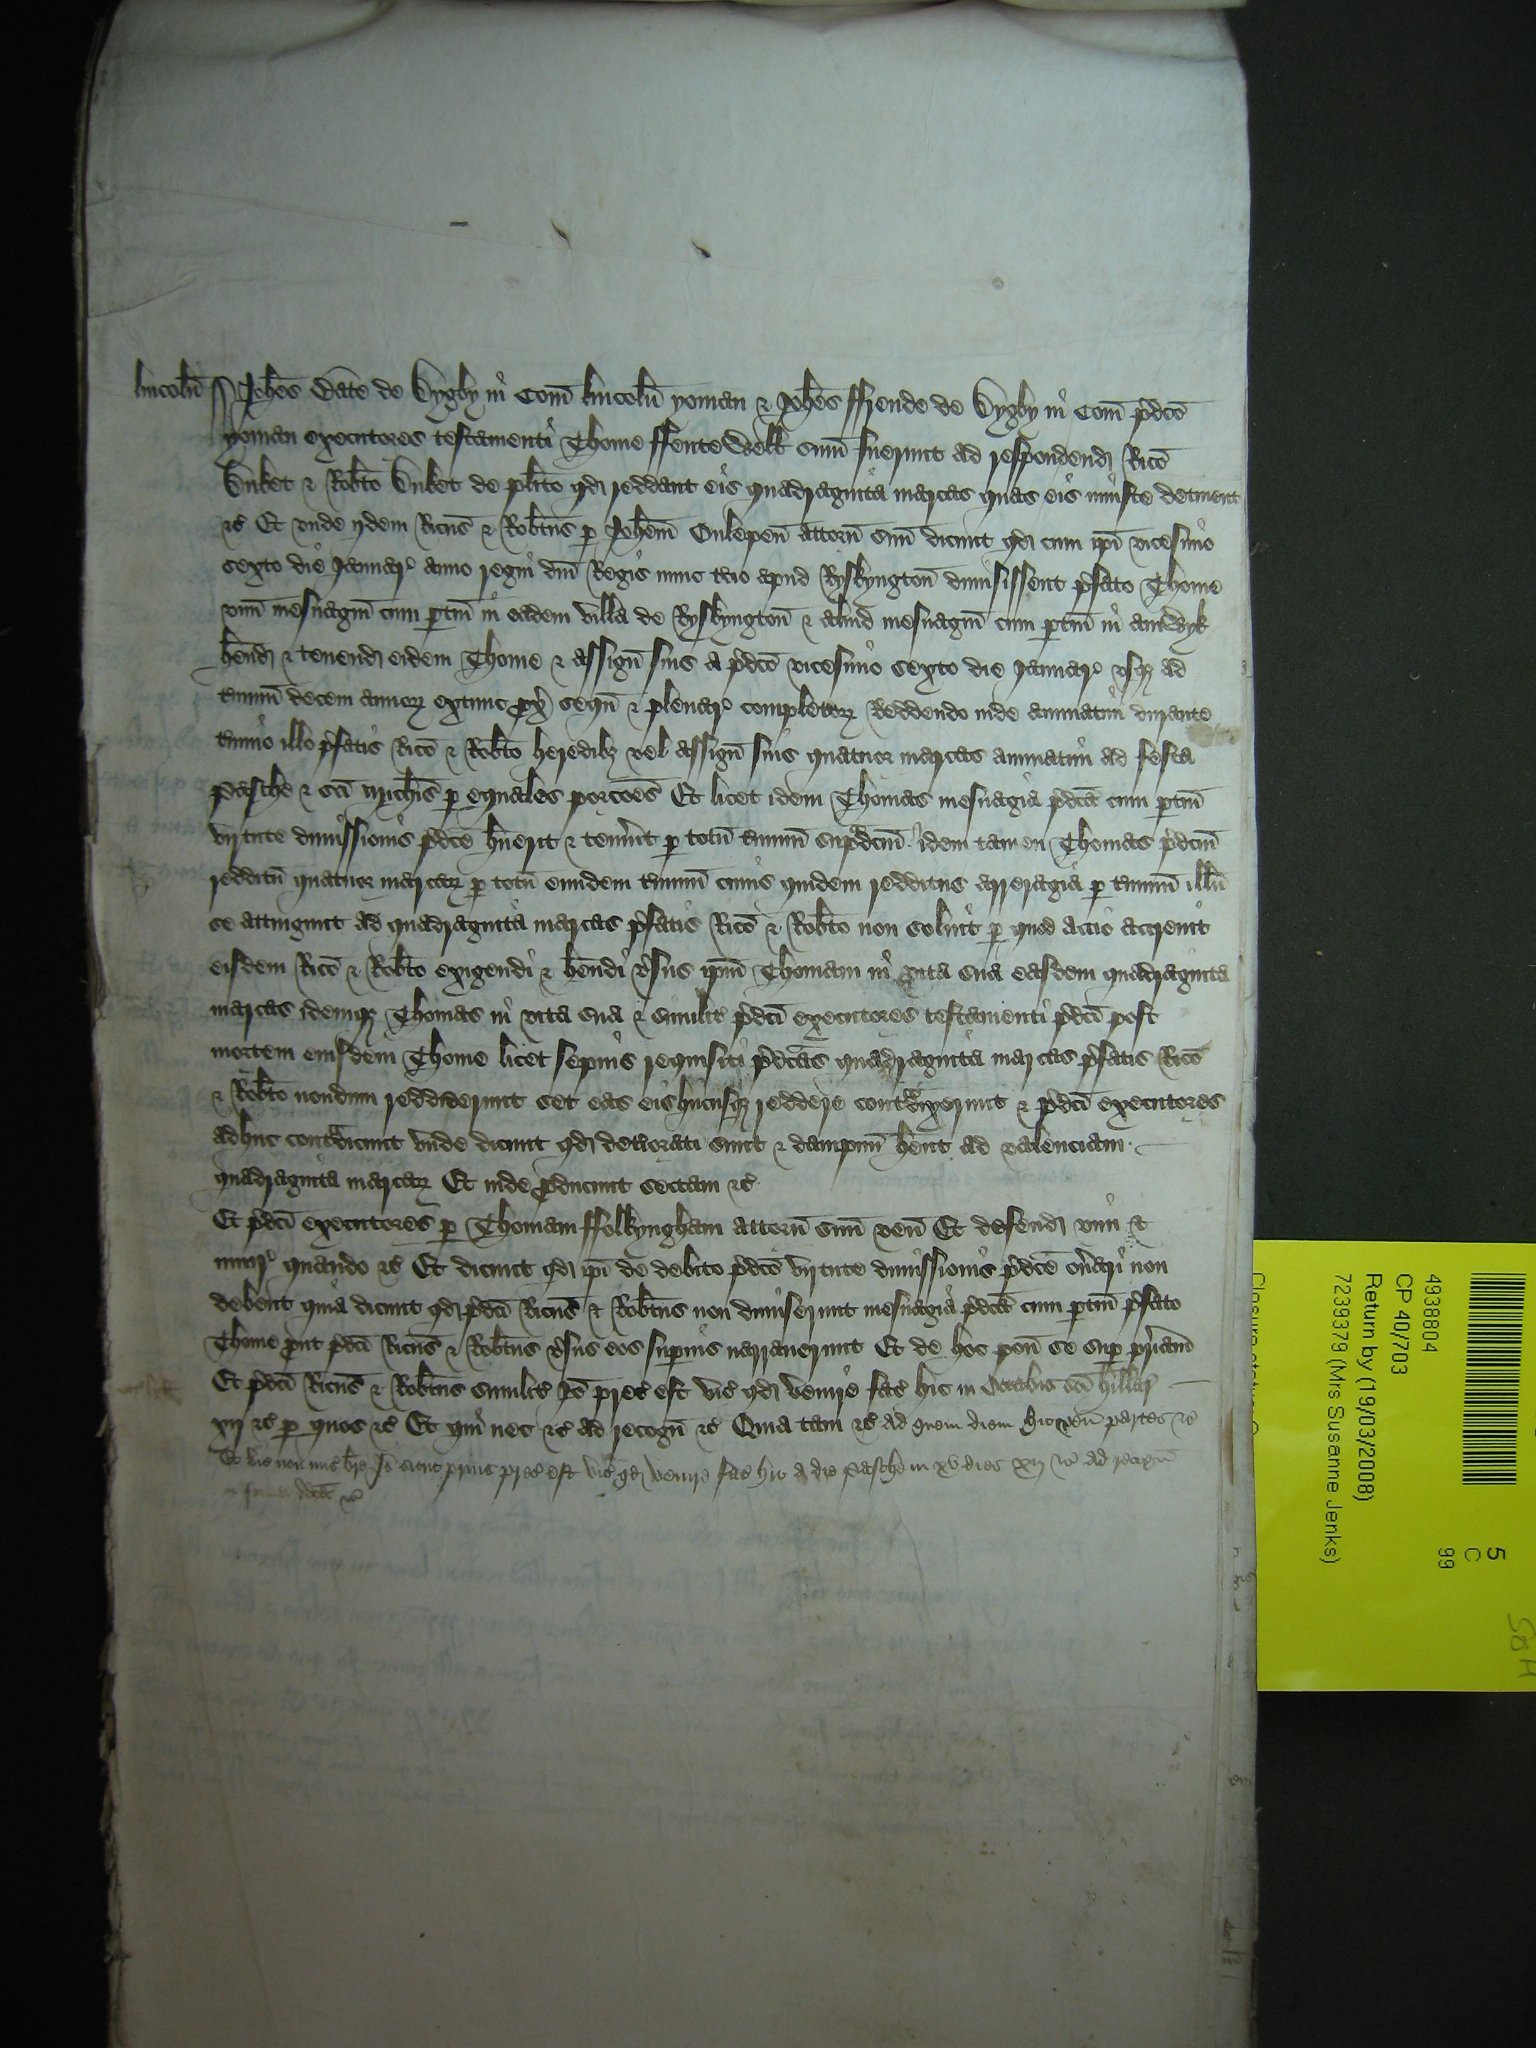 lincoln̄ Joh̄es Bate de Dygby in Com̄ lincoln̄ yoman & Joh̄es ffrende de Dygby in Com̄ p̄dc̄o
yoman executores testamenti Thome ffentewell sum̄ fuerunt ad respondend Ric̄o
Duket & Rob̄to Duket de pl̄ito qd reddant eis quadraginta marcas quas eis iniuste detinent
&c̄ Et vnde ijdem Ric̄us & Rob̄tus p Joh̄em attorn̄ suū dicunt qd cum ip̄i vicesimo
sexto die Januar̄ anno regni dn̄i Regis nunc apud Ryskyngton̄ dimisissent p̄fato Thome
vnū mesuagiū cum ptin̄ in eadem villa de Ryskyngton̄ & aliud mesuagiū cum ptin̄ in amwyk
h̄end & tenend eidem Thome & assign̄ suis a p̄dc̄o vicesimo sexto die Januar̄ vsq ad
t̄minū decem annoꝝ extunc px̄ seqū & plenar̄ completoꝝ Reddendo inde annuatim durante
t̄mino illo p̄fatis Ric̄o & Rob̄to heredibꝫ vel assign̄ suis quatuor marcas annuatim ad festa
pasche & sc̄i mich̄is p equales porc̄oes Et licet idem Thomas mesuagia p̄dc̄a cum ptin̄
virtute dimissionis p̄dc̄e h̄uerit & tenu̾it p totū t̄minū sup̄dc̄um idem tamen Thomas p̄dc̄um
redditū quatuor marcaꝝ p totū eundem t̄minū cuius quidem redditus arreragia p t̄minū illū
se attingunt ad quadraginta marcas p̄fatis Ric̄o & Rob̄to non soluit p quod accio accreuit
eisdem Ric̄o & Rob̄to exigendi & h̄endi v̾sus ip̄m Thomam in vita sua easdem quadraginta
marcas idemqꝫ Thomas in vita sua & similit̾ p̄dc̄i executores testamenti p̄dc̄i post
mortem eiusdem Thome licet sepius requisiti p̄dc̄as quadraginta marcas p̄fatis Ric̄o
& Rob̄to nondum reddiderunt set eas eis hucusqꝫ reddere contᵃdixerunt & p̄dc̄i executores
adhuc contᵃdicunt vnde dicunt qd deteriorati sunt & dampnū h̄ent ad valenciam
quadraginta marcaꝝ Et inde pducunt sectam &c̄
Et p̄dc̄i executores p Thomam ffolkyngham attorn̄ suū ven̄ Et defend vim &
iniur̄ quando &c̄ Et dicunt qd ip̄i de debito p̄dc̄o virtute dimissionis p̄dc̄e on̾ari non
debent quia dicunt qd p̄dc̄i Ric̄us & Rob̄tus non dimiserunt mesuagia p̄dc̄a cum ptin̄ p̄fato
Thome put p̄dc̄i Ric̄us & Rob̄tus v̾sus eos superius narrauerunt Et de hoc pon̄ se sup pr̄iam
Et p̄dc̄i Ric̄us & Rob̄tus similit̾ Iō prec̄ est vic̄ qd venire fac̄ hic in Octabis sc̄i hillar̄
xij &c̄ p quos &c̄ Et qui nec &c̄ ad recogn̄ &c̄ Quia tam &c̄ ad quem diem hic ven̄ partes &c̄
Et vic̄ non mis̄ br̄e Iō sicut prius prec̄ est vic̄ qd venire fac̄ hic a die pasche in xv dies xij &c̄ ad recogn̄
4938804
CP 40/703
Return by (19/03/2008)
7239379 (Mrs Susanne Jenks)
5
C
99